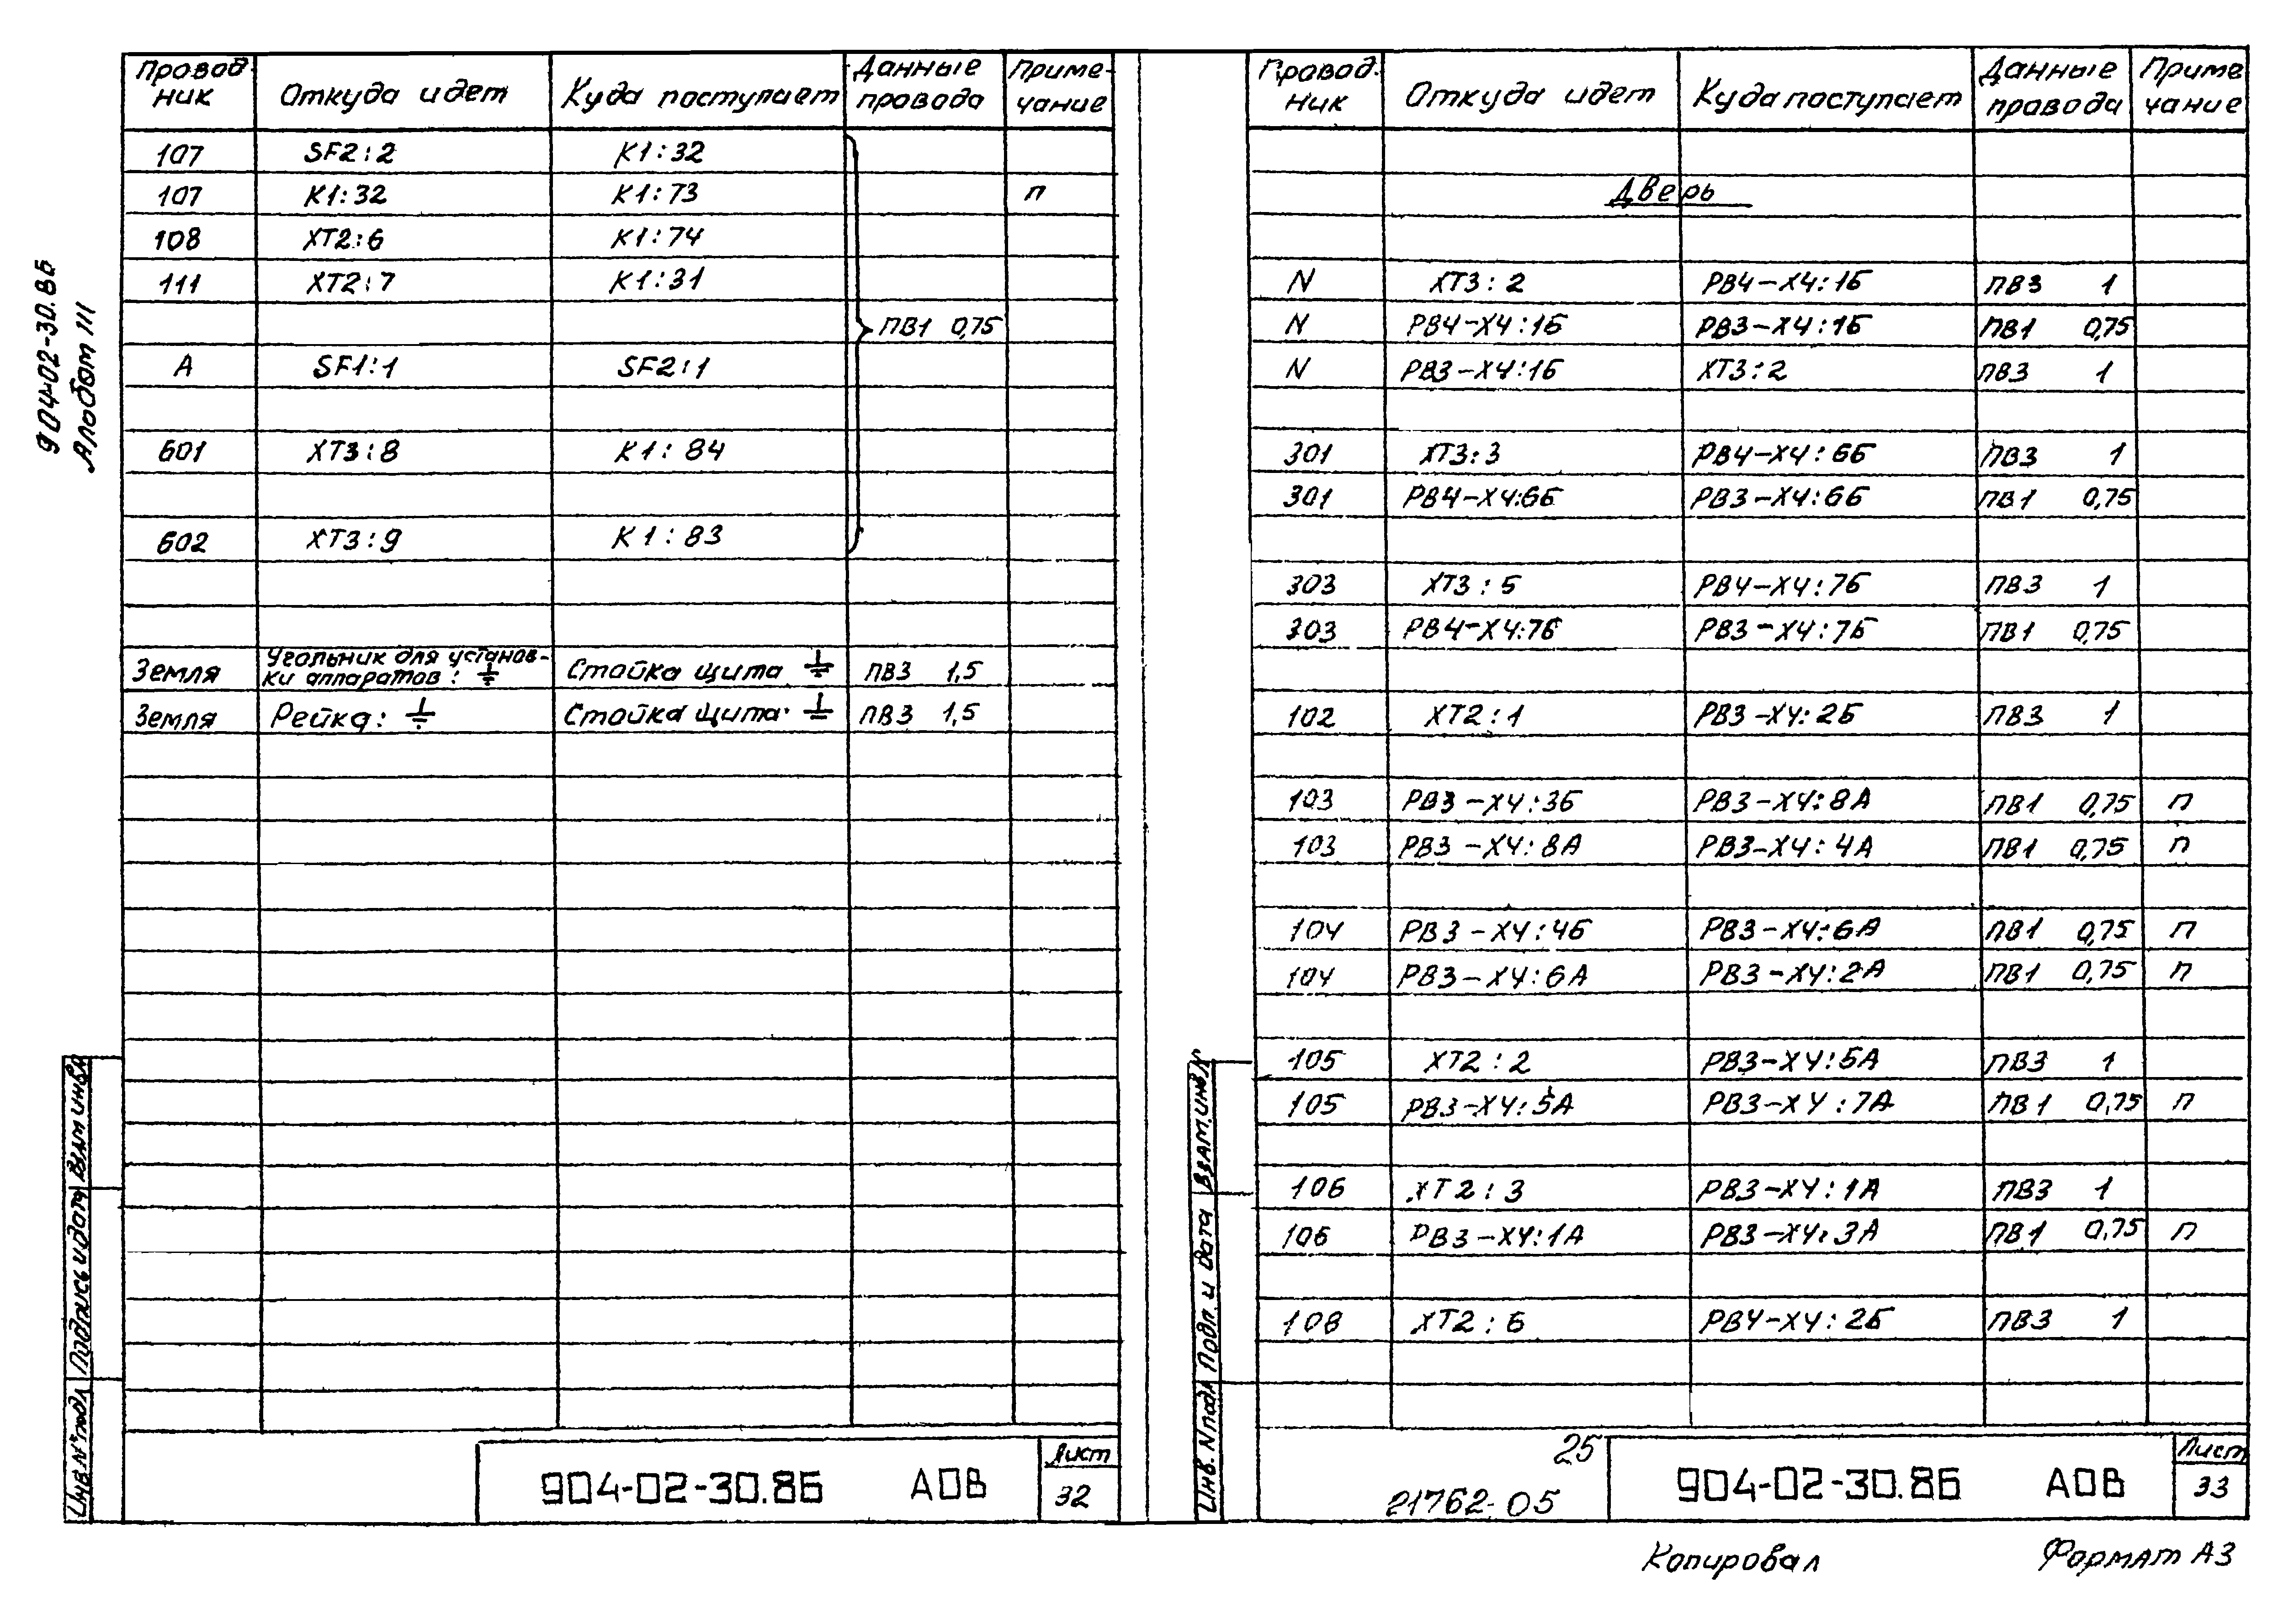 904-02-30.86
Альбом III
Провод- Откуда идет Куда поступает Данные Приме-
ник провода чание
107 SF2:2 K1:32
107 K1:32 K1:73 п
108 XT2:6 K1:74
111 XT2:7 K1:31
ПВ1 0,75
A SF1:1 SF2:1
601 XT3:8 K1:84
602 XT3:9 K1:83
Земля Угольник для установ- Стойка щита ПВ3 1,5
ки аппаратов:
Земля Рейка: Стойка щита ПВ3 1,5
Инв.N°подл Подпись и дата Взам.инв.N
904-02-30.86 АОВ
Лист
32
Провод- Откуда идет Куда поступает Данные Приме
ник провода чание
Дверь
N XT3:2 РВ4-Х4:1Б ПВ3 1
N РВ4-Х4:1Б РВ3-Х4:1Б ПВ1 0,75
N РВ3-Х4:1Б XT3:2 ПВ3 1
301 XT3:3 РВ4-Х4:6Б ПВ3 1
301 РВ4-Х4:6Б РВ3-Х4:6Б ПВ1 0,75
303 XT3:5 РВ4-Х4:7Б ПВ3 1
303 РВ4-Х4:7Б РВ3-Х4:7Б ПВ1 0,75
102 XT2:1 РВ3-Х4:2Б ПВ3 1
103 РВ3-Х4:3Б РВ3-Х4:8А ПВ1 0,75 п
103 РВ3-Х4:8А РВ3-Х4:4А ПВ1 0,75 п
104 РВ3-Х4:4Б РВ3-Х4:6А ПВ1 0,75 п
104 РВ3-Х4:6А РВ3-Х4:2А ПВ1 0,75 п
105 XT2:2 РВ3-Х4:5А ПВ3 1
105 РВ3-Х4:5А РВ3-Х4:7А ПВ1 0,75 п
106 XT2:3 РВ3-Х4:1А ПВ3 1
106 РВ3-Х4:1А РВ3-Х4:3А ПВ1 0,75 п
108 XT2:6 РВ4-Х4:2Б ПВ3 1
Инв. N подл Подп. и дата Взам.инв.N
25
21762-05
904-02-30.86 АОВ
Лист
33
Копировал Формат А3